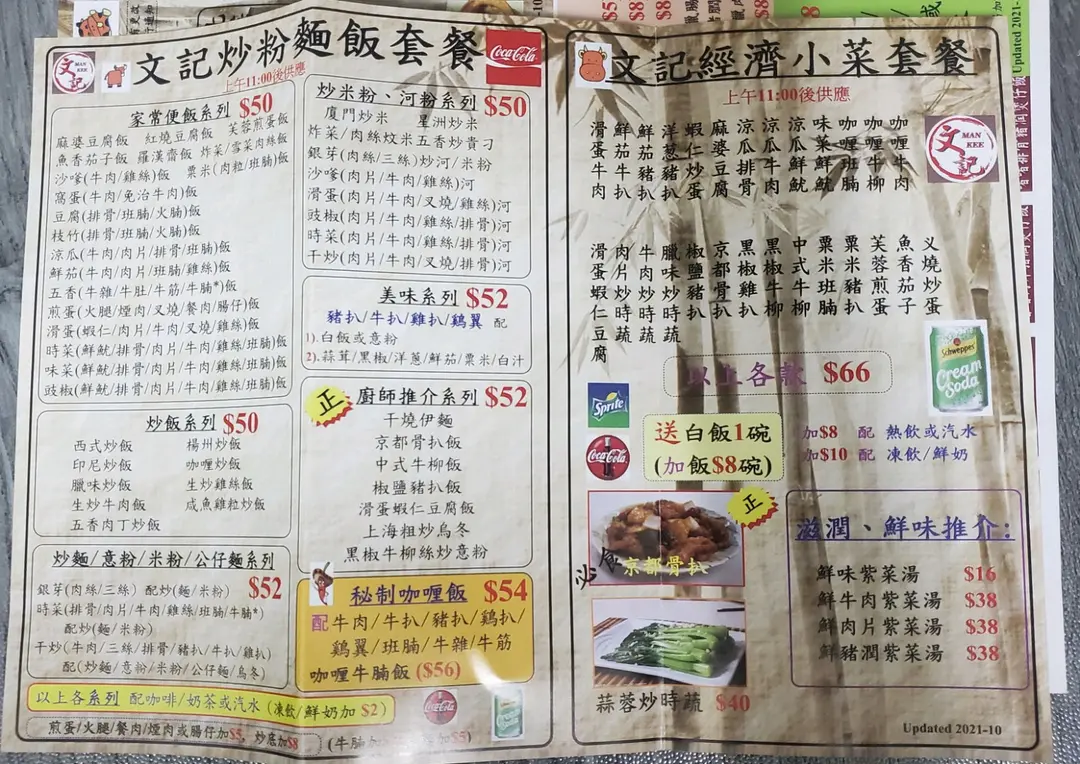 文記炒粉麵飯套餐
上午11:00後供應
文記 MAN KEE
Coca-Cola
家常便飯系列 $50
麻婆豆腐飯 紅燒豆腐飯 芙蓉煎蛋飯
魚香茄子飯 羅漢齋飯 炸菜/雪菜肉絲飯
沙嗲(牛肉/雞絲)飯 粟米(肉粒/班腩)飯
窩蛋(牛肉/免治牛肉)飯
豆腐(排骨/班腩/火腩)飯
枝竹(排骨/班腩/火腩)飯
涼瓜(牛肉/肉片/排骨/班腩)飯
鮮茄(牛肉/肉片/班腩/雞絲)飯
五香(牛雜/牛肚/牛筋/牛腩*)飯
煎蛋(火腿/煙肉/叉燒/餐肉/腸仔)飯
滑蛋(蝦仁/肉片/牛肉/叉燒/雞絲)飯
時菜(鮮魷/排骨/肉片/牛肉/雞絲/班腩)飯
味菜(鮮魷/排骨/肉片/牛肉/雞絲/班腩)飯
豉椒(鮮魷/排骨/肉片/牛肉/雞絲/班腩)飯
炒飯系列 $50
西式炒飯 楊州炒飯
印尼炒飯 咖喱炒飯
臘味炒飯 生炒雞絲飯
生炒牛肉飯 咸魚雞粒炒飯
五香肉丁炒飯
炒麵/意粉/米粉/公仔麵系列
銀芽(肉絲/三絲) 配炒(麵/米粉) $52
時菜(排骨/肉片/牛肉/雞絲/班腩/牛腩*)
配炒(麵/米粉)
干炒(牛肉/三絲/排骨/豬扒/牛扒/雞扒)
配(炒麵/意粉/米粉/公仔麵/烏冬)
炒米粉、河粉系列 $50
廈門炒米 星洲炒米
炸菜/肉絲炆米 五香炒貴刁
銀芽(肉絲/三絲)炒河/米粉
沙嗲(肉片/牛肉/雞絲)河
滑蛋(肉片/牛肉/叉燒/雞絲)河
豉椒(肉片/牛肉/雞絲/排骨)河
時菜(肉片/牛肉/雞絲/排骨)河
干炒(肉片/牛肉/叉燒/排骨)河
美味系列 $52
豬扒/牛扒/雞扒/鷄翼 配
1).白飯或意粉
2).蒜茸/黑椒/洋蔥/鮮茄/粟米/白汁
正 廚師推介系列 $52
干燒伊麵
京都骨扒飯
中式牛柳飯
椒鹽豬扒飯
滑蛋蝦仁豆腐飯
上海粗炒烏冬
黑椒牛柳絲炒意粉
秘制咖喱飯 $54
配牛肉/牛扒/豬扒/鷄扒/
鷄翼/班腩/牛雜/牛筋
咖喱牛腩飯 ($56)
以上各系列 配咖啡/奶茶或汽水(凍飲/鮮奶加 $2)
煎蛋/火腿/餐肉/煙肉或腸仔加$5, 炒底加$8
文記經濟小菜套餐
上午11:00後供應
文記 MAN KEE
滑蛋牛肉
鮮茄牛扒
鮮茄豬扒
洋蔥豬扒
蝦仁炒蛋
麻婆豆腐
涼瓜排骨
涼瓜牛肉
涼瓜鮮魷
味菜鮮魷
咖喱班腩
咖喱牛柳
咖喱牛肉
滑蛋蝦仁豆腐
肉片炒時蔬
牛肉炒時蔬
臘味炒時蔬
椒鹽豬扒
京都骨扒
黑椒雞扒
黑椒牛柳
中式牛柳
粟米班腩
粟米豬扒
芙蓉煎蛋
魚香茄子
义燒炒蛋
以上各款 $66
Schweppes
Cream Soda
Sprite
Coca-Cola
送白飯1碗
(加飯$8碗)
加$8 配 熱飲或汽水
加$10 配 凍飲/鮮奶
正
必食
京都骨扒
蒜蓉炒時蔬 $40
滋潤、鮮味推介:
鮮味紫菜湯 $16
鮮牛肉紫菜湯 $38
鮮肉片紫菜湯 $38
鮮豬潤紫菜湯 $38
Updated 2021-10